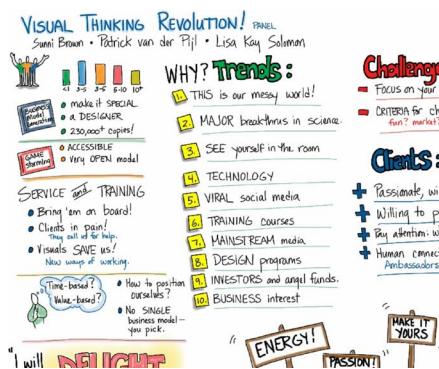 VISUAL THINKING REVOLUTION! PANEL
Sunni Brown • Patrick van der Pijl • Lisa Kay Solomon
<1 3-5 5-10 10+
BUSINESS Model Generation
• make it SPECIAL
• a DESIGNER
• 230,000+ copies!
GAME storming
• ACCESSIBLE
• very OPEN model
SERVICE and TRAINING
• Bring 'em on board!
• Clients in pain!
They call us for help.
• Visuals SAVE us!
New ways of working.
Time-based?
Value-based?
• How to position ourselves?
• No SINGLE business model — you pick.
"I will DELIGHT
WHY? Trends:
1. THIS is our messy world!
2. MAJOR breakthrus in science.
3. SEE yourself in the room
4. TECHNOLOGY
5. VIRAL social media
6. TRAINING courses
7. MAINSTREAM media
8. DESIGN programs
9. INVESTORS and angel funds.
10. BUSINESS interest
ENERGY!
PASSION!
MAKE IT YOURS
Challeng
- FOCUS on your
- CRITERIA for ch
fun? market?
Clients:
+ Passionate, wi
+ Willing to p
+ Pay attention: w
+ Human connec
Ambassadors